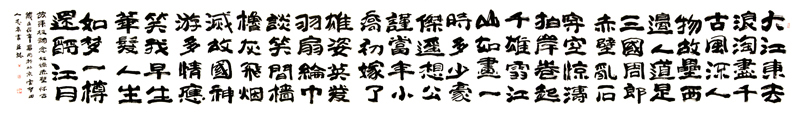 大江東去
浪淘盡千
古風流人
物故壘西
邊人道是
三國周郎
赤壁亂石
穿空驚濤
拍岸卷起
千堆雪江
山如畫一
時多少豪
傑遙想公
謹當年小
喬初嫁了
雄姿英發
羽扇綸巾
談笑間檣
櫓灰飛烟
滅故國神
游多情應
笑我早生
華髮人生
如夢一樽
還酹江月